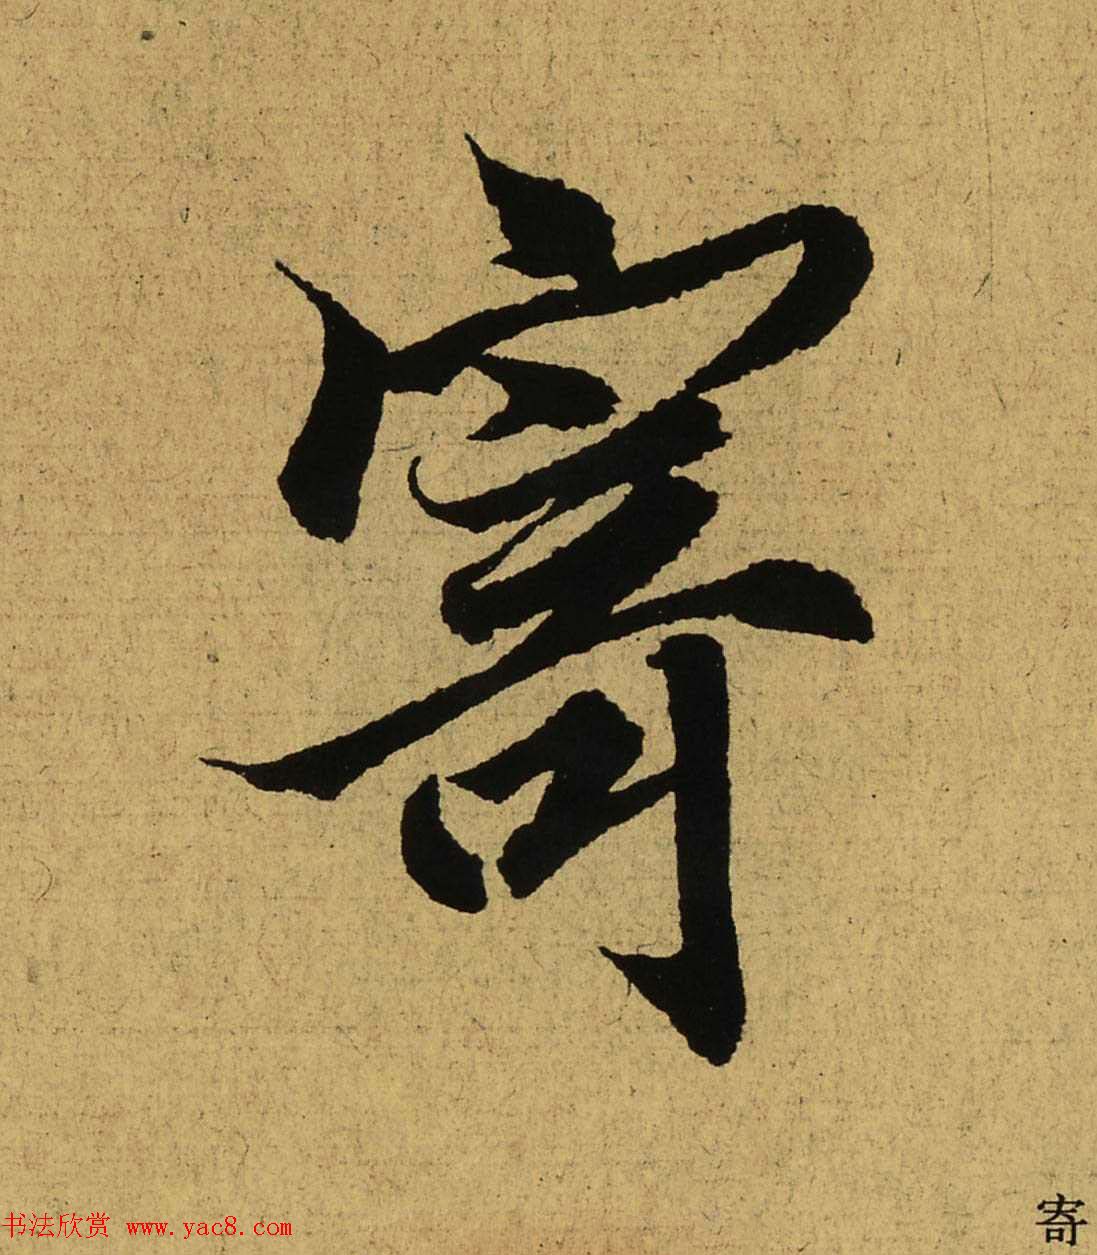 寄
书法欣赏 www.yac8.com
寄